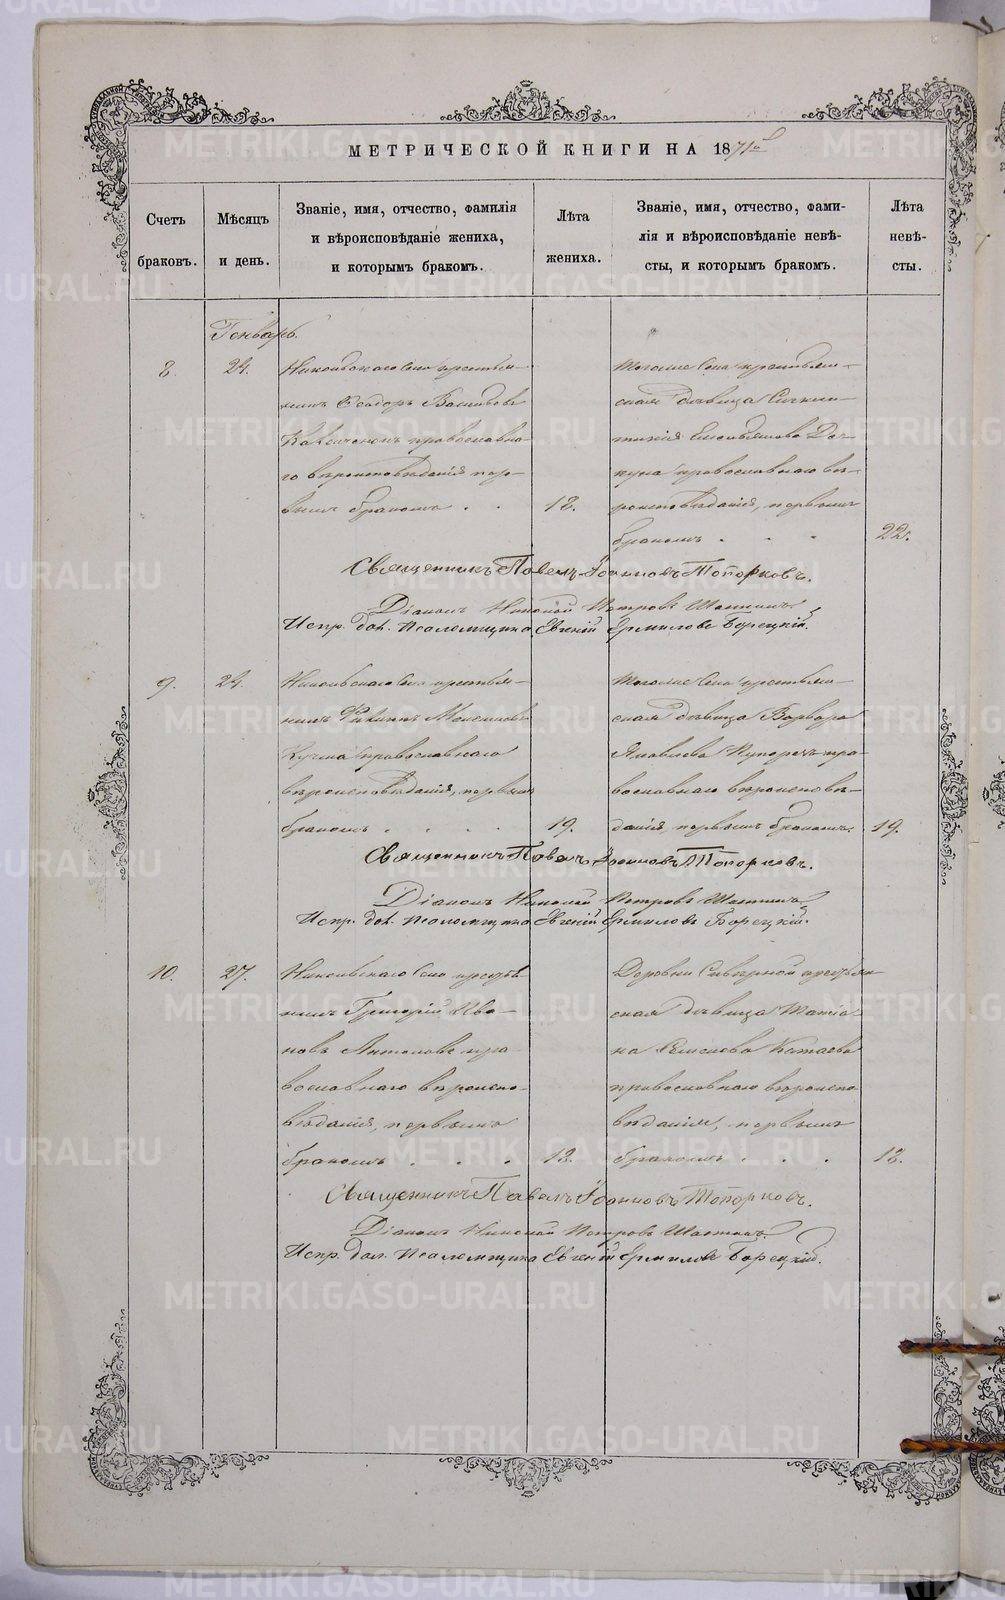 МЕТРИЧЕСКОЙ КНИГИ НА 1871й
Счетъ браковъ.
Мѣсяцъ и день.
Званіе, имя, отчество, фамилія
и вѣроисповѣданіе жениха,
и которымъ бракомъ.
Лѣта жениха.
Званіе, имя, отчество, фами-
лія и вѣроисповѣданіе невѣ-
сты, и которымъ бракомъ.
Лѣта невѣ-
сты.
Генварь.
8. 24.
Никольскаго Села крестья-
нинъ Ѳеодоръ Васильевъ
православна-
го вѣроисповѣданія пер-
вымъ бракомъ . . 18.
Тогоже Села крестьян-
ская дѣвица
православнаго вѣ-
роисповѣданія, первымъ
бракомъ . . . 22.
Священникъ Павелъ Іоанновъ Топорковъ.
Діаконъ Николай Петровъ
Испр. дол. Псаломщика Евгеній Ермиловъ Борецкій.
9. 24.
Никольскаго Села крестья-
нинъ Филиппъ
православнаго
вѣроисповѣданія, первымъ
бракомъ . . . . 19.
Тогоже Села крестьян-
ская дѣвица Варвара
Яковлева пра-
вославнаго вѣроисповѣ-
данія, первымъ бракомъ. 19.
Священникъ Павелъ Іоанновъ Топорковъ.
Діаконъ Николай Петровъ
Испр. дол. Псаломщика Евгеній Ермиловъ Борецкій.
10. 27.
Никольскаго Села крестья-
нинъ Григорій Ива-
новъ пра-
вославнаго вѣроиспо-
вѣданія, первымъ
бракомъ . . . 18.
Деревни Сиверной крестьян
ская дѣвица Татія-
на Катаева
православнаго вѣроиспо
вѣданія, первымъ
бракомъ . . . 18.
Священникъ Павелъ Іоанновъ Топорковъ.
Діаконъ Николай Петровъ
Испр. дол. Псаломщика Евгеній Ермиловъ Борецкій.
METRIKI.GASO-URAL.RU